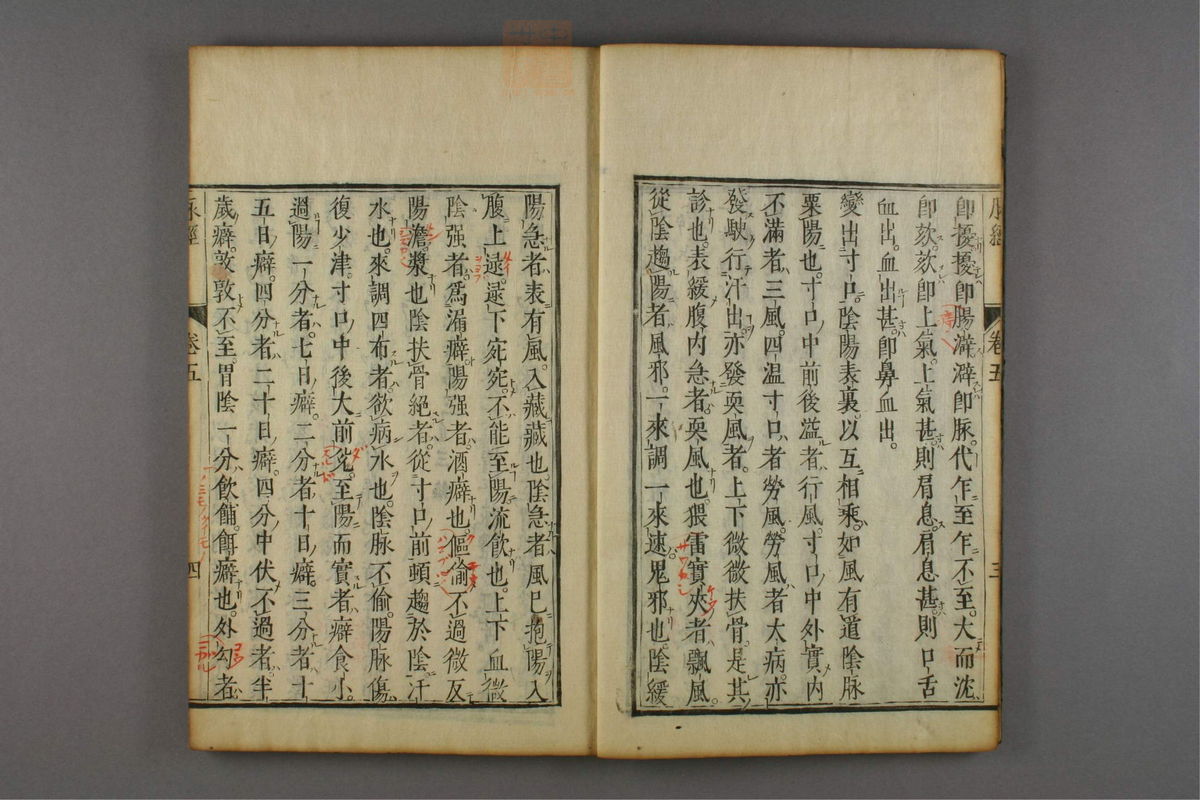 脉經 卷五 三
卽擾擾卽腸澼澼卽脉代乍至乍不至大而沈
卽欬欬卽上氣上氣甚則肩息肩息甚則口舌
血出血出甚卽鼻血出
變出寸口陰陽表裏以互相乘如風有道陰脉
乗陽也寸口中前後溢者行風寸口中外實內
不滿者三風四温寸口者勞風勞風者大病亦
發駛行汗出亦發耎風者上下微微扶骨是其
診也表緩腹內急者耎風也猥雷實夾者飄風
從陰趨陽者風邪一來調一來速鬼邪也陰緩
陽急者表有風入藏藏也陰急者風已抱陽入
腹上逯逯下宛宛不能至陽流飮也上下血微
陰强者爲漏癖陽强者酒癖也傴偷不過微反
陽澹漿也陰扶骨絕者從寸口前頓趨於陰汗
水也來調四布者欲病水也陰脉不偷陽脉傷
復少津寸口中後大前兌至陽而實者癖食小
過陽一分者七日癖二分者十日癖三分者十
五日癖四分者二十日癖四分中伏不過者半
歲癖敦敦不至胃陰一分飮餔餌癖也外勾者
脉經 卷五 四